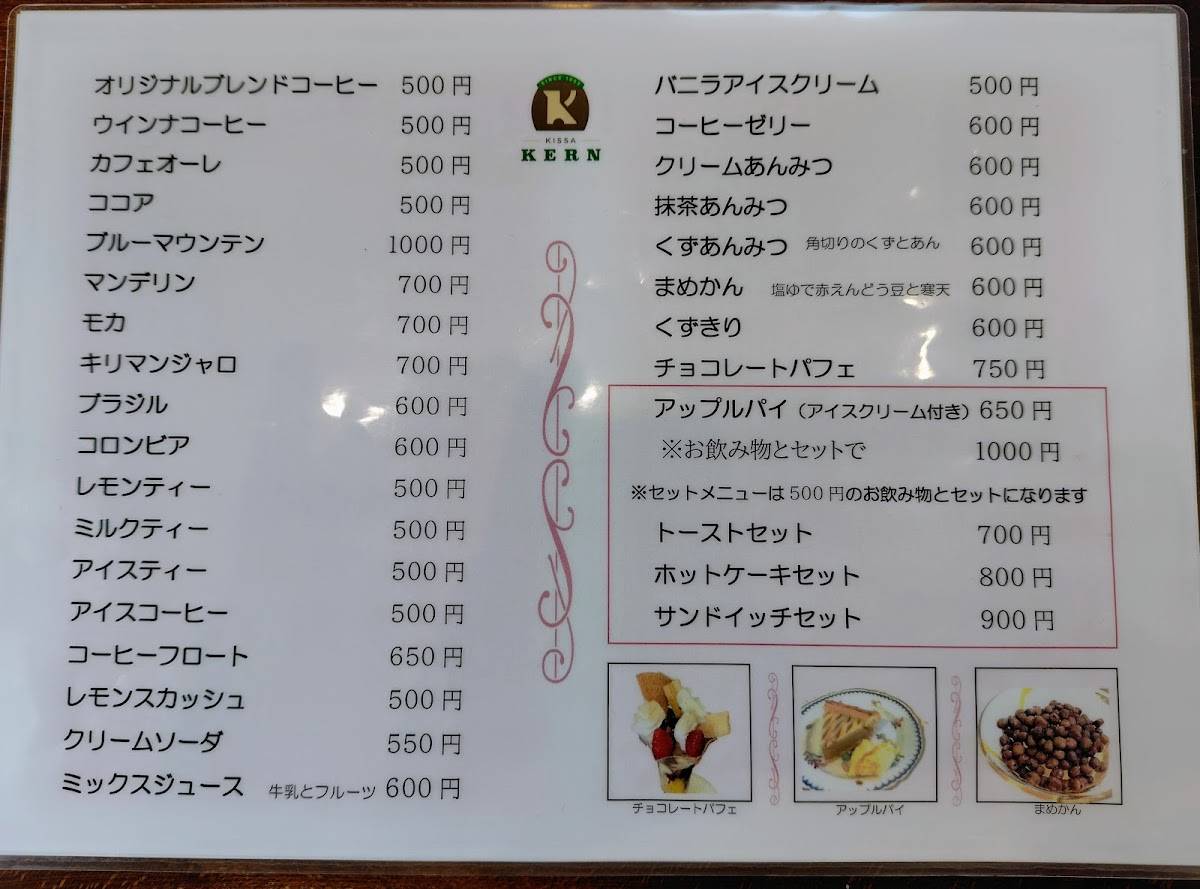 オリジナルブレンドコーヒー 500円
ウインナコーヒー 500円
カフェオーレ 500円
ココア 500円
ブルーマウンテン 1000円
マンデリン 700円
モカ 700円
キリマンジャロ 700円
ブラジル 600円
コロンビア 600円
レモンティー 500円
ミルクティー 500円
アイスティー 500円
アイスコーヒー 500円
コーヒーフロート 650円
レモンスカッシュ 500円
クリームソーダ 550円
ミックスジュース 牛乳とフルーツ 600円
K
KISSA
KERN
バニラアイスクリーム 500円
コーヒーゼリー 600円
クリームあんみつ 600円
抹茶あんみつ 600円
くずあんみつ 角切りのくずとあん 600円
まめかん 塩ゆで赤えんどう豆と寒天 600円
くずきり 600円
チョコレートパフェ 750円
アップルパイ（アイスクリーム付き）650円
※お飲み物とセットで 1000円
※セットメニューは500円のお飲み物とセットになります
トーストセット 700円
ホットケーキセット 800円
サンドイッチセット 900円
チョコレートパフェ
アップルパイ
まめかん